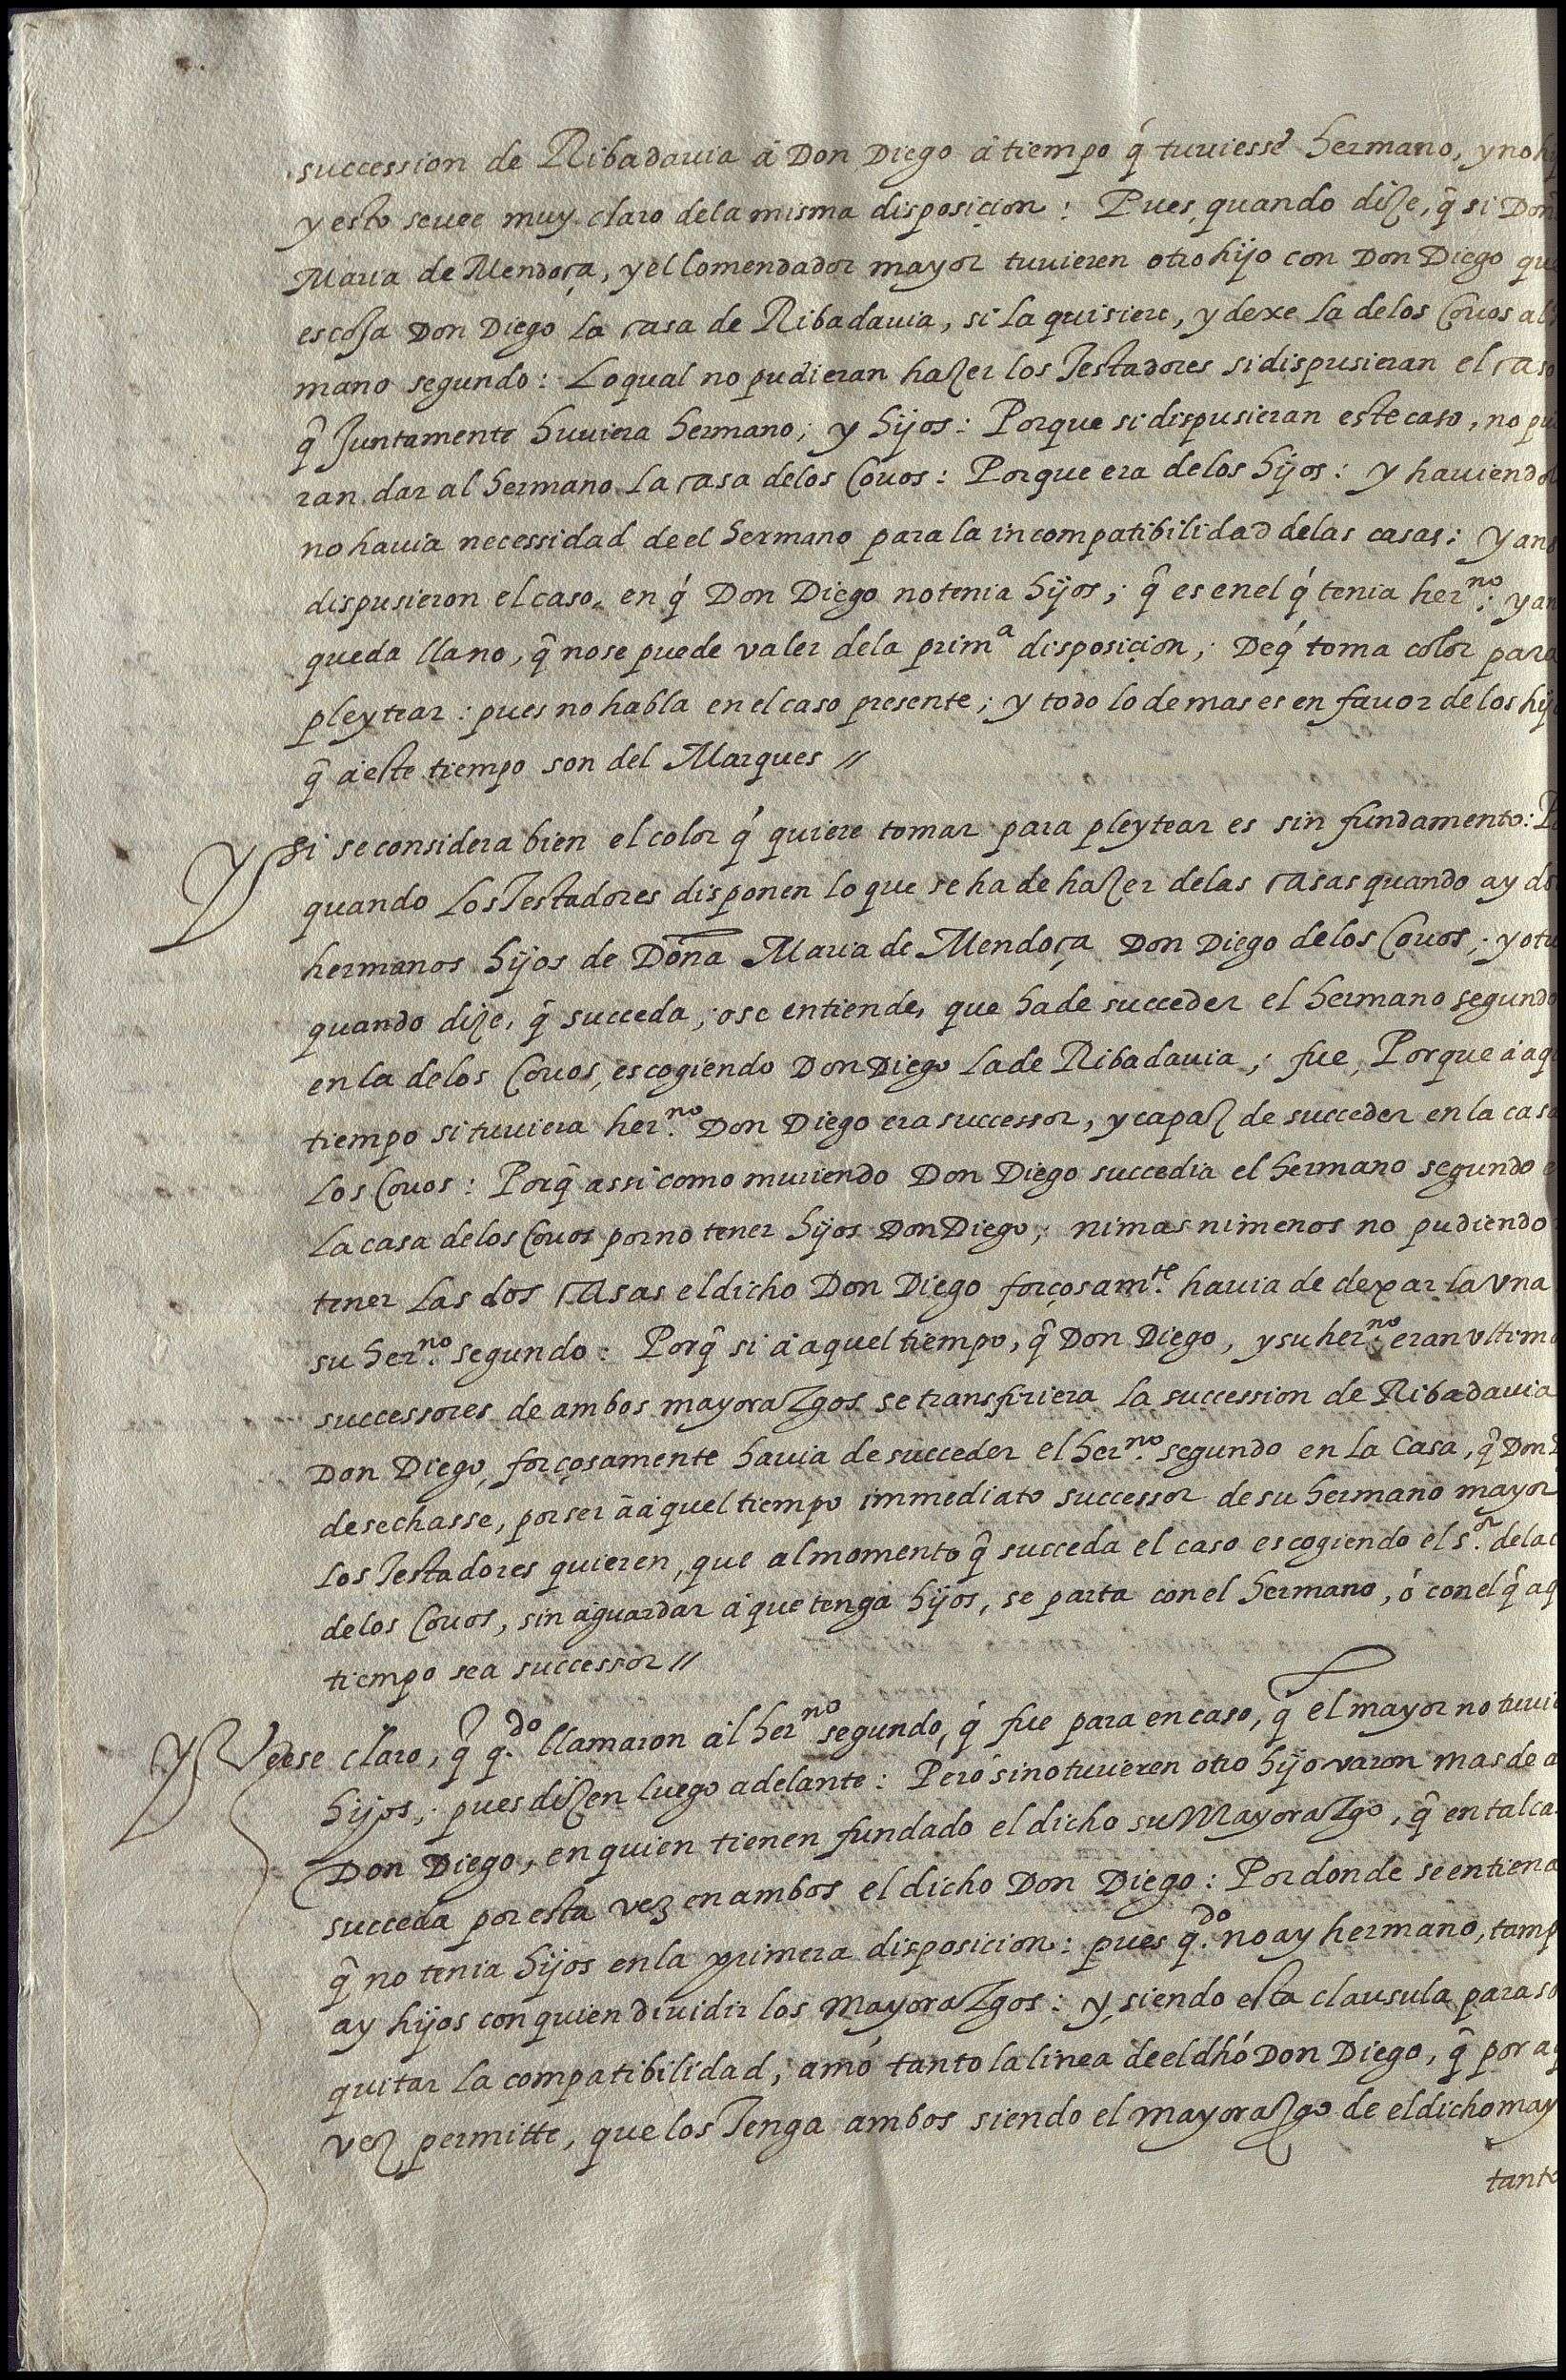 succession de Ribadauia á Don Diego á tiempo q̃ tuuiesse hermano, y no
y esto se uee muy claro dela misma disposiçion: Pues quando dize, q̃ si Doñ
Maria de Mendoça, y el Comendador mayor tuuieren otro hijo con Don Diego que
escoja Don Diego la casa de Ribadauia, si la quisiere, y dexe la delos Couos al
mano segundo: Lo qual no pudieran hazer los Testadores si dispusieran el caso
q̃ Juntamente huuiera hermano, y hijos: Porque si dispusieran este caso, no pu
ran dar al hermano la casa delos Couos: Porque era delos hijos: y hauiendo
no hauia necessidad de el hermano para la incompatibilidad delas casas: y ans
dispusieron el caso, en q̃ Don Diego no tenia hijos; q̃ es en el q̃ tenia her.no; y an
queda llano, q̃ no se puede valer dela prim.a disposiçion; De q̃ toma color para
pleytear: pues no habla en el caso presente; y todo lo demas es en fauor de los hij
q̃ á este tiempo son del Marques //
Y si se considera bien el color q̃ quiere tomar para pleytear es sin fundamento: P
quando Los Testadores disponen lo que se ha de hazer delas casas quando ay do
hermanos hijos de Doña Maria de Mendoça Don Diego delos Couos; y otr
quando dize, q̃ succeda, o se entiende, que ha de succeder el hermano segundo
en la delos Couos, escogiendo Don Diego la de Ribadauia; fue, Porque á aq
tiempo si tuuiera her.no Don Diego era successor, y capaz de succeder en la casa
Los Couos: Porq̃ assi como muriendo Don Diego succedia el hermano segundo e
La casa delos Couos por no tener hijos Don Diego; ni mas ni menos no pudiendo
tener las dos casas el dicho Don Diego forçosam.te hauia de dexar la vna
su her.no segundo: Porq̃ si á aquel tiempo, q̃ Don Diego, y su her.no eran vltimo
successores de ambos mayorazgos se transfiriera la succession de Ribadauia
Don Diego, forçosamente hauia de succeder el her.no segundo en la Casa, q̃ Don D
desechasse, por ser á aquel tiempo immediato successor de su hermano mayor
Los Testadores quieren, que al momento q̃ succeda el caso escogiendo el s.or dela c
delos Couos, sin aguardar á que tenga hijos, se parta con el hermano, ó con el q̃ aq
tiempo sea successor //
Y Veese claro, q̃ q.do llamaron al her.no segundo, q̃ fue para en caso, q̃ el mayor no tuuie
hijos; pues dizen luego adelante: Peró si no tuuieren otro hijo varon mas de a
Don Diego, en quien tienen fundado el dicho su Mayorazgo, q̃ en tal ca
succeda por esta vez en ambos el dicho Don Diego: Por donde se entiend
q̃ no tenia hijos en la primera disposicion: pues q.do no ay hermano, tamp
ay hijos con quien diuidir los Mayorazgos: y siendo esta clausula para so
quitar la compatibilidad, amó tanto la linea de el dho Don Diego, q̃ por aq
vez permitte, que los Tenga ambos siendo el mayorazgo de el dicho may
tante